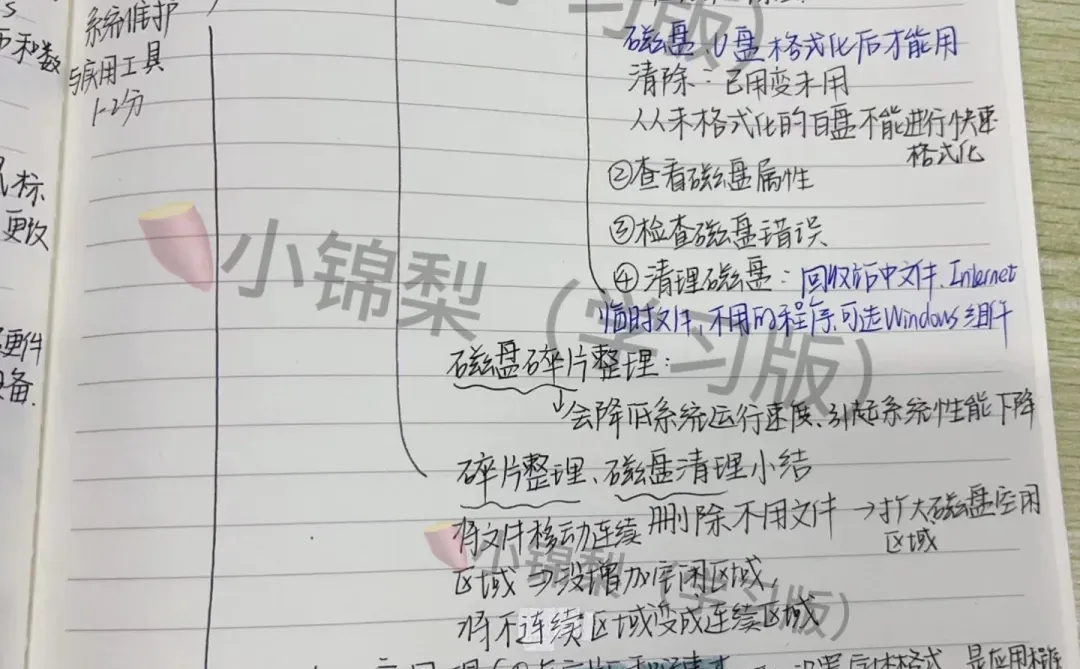 系统维护
与实用工具
1-2分
和数
标
更改
硬件
备.
磁盘、U盘格式化后才能用
清除：已用变未用
从从未格式化的白盘不能进行快速
格式化
②查看磁盘属性
③检查磁盘错误
④清理磁盘：回收站中文件、Internet
临时文件、不用的程序、可选Windows组件
磁盘碎片整理：
↓会降低系统运行速度、引起系统性能下降
碎片整理、磁盘清理小结
将文件移动连续 删除不用文件→扩大磁盘空闲
区域
区域⇒没增加空闲区域，
将不连续区域变成连续区域
小锦梨（学习版）
小锦梨（学习版）